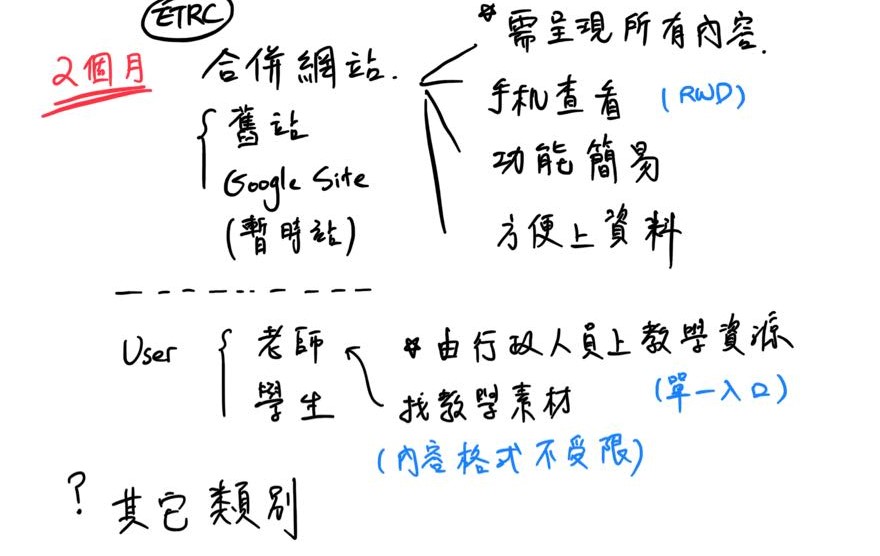 ETRC
2個月
合併網站.
舊站
Google Site
(暫時站)
*需呈現所有內容.
手机查看 (RWD)
功能簡易
方便上資料
User
老師
學生
*由行政人員上教學資源
(單一入口)
找教學素材
(內容格式不受限)
? 其它類別